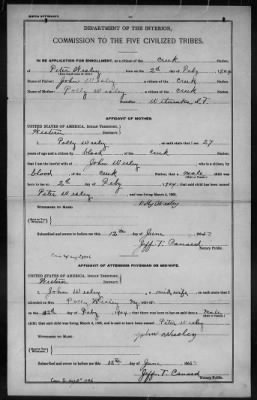 BIRTH AFFIDAVIT.
DEPARTMENT OF THE INTERIOR,
COMMISSION TO THE FIVE CIVILIZED TRIBES.
IN RE APPLICATION FOR ENROLLMENT, as a citizen of the Creek Nation,
of Peter Wesley, born on the 2nd day of Feby, 1904
Name of Father: John Wesley a citizen of the Creek Nation.
Name of Mother: Polly Wesley a citizen of the Creek Nation.
Postoffice Wetumka I.T.
AFFIDAVIT OF MOTHER.
UNITED STATES OF AMERICA, INDIAN TERRITORY,
Western DISTRICT.
I, Polly Wesley, on oath state that I am 27
years of age and a citizen by blood, of the Creek Nation;
that I am the lawful wife of John Wesley, who is a citizen, by
blood of the Creek Nation; that a male child was
born to me on 2nd day of Feby, 1904, that said child has been named
Peter Wesley, and was living March 4, 1905.
Polly Wesley
WITNESSES TO MARK:
Subscribed and sworn to before me this 12th day of June, 1905
Jeff. T. Canard
Notary Public.
AFFIDAVIT OF ATTENDING PHYSICIAN OR MID-WIFE.
UNITED STATES OF AMERICA, INDIAN TERRITORY,
Western DISTRICT.
I, John Wesley, a midwife, on oath state that I
attended on Mrs. Polly Wesley, my wife
on the 2nd day of Feby, 1904; that there was born to her on said date a male
child; that said child was living March 4, 1905, and is said to have been named Peter Wesley
John Wesley
WITNESSES TO MARK:
Subscribed and sworn to before me this 12th day of June, 1905
Jeff. T. Canard
Notary Public.